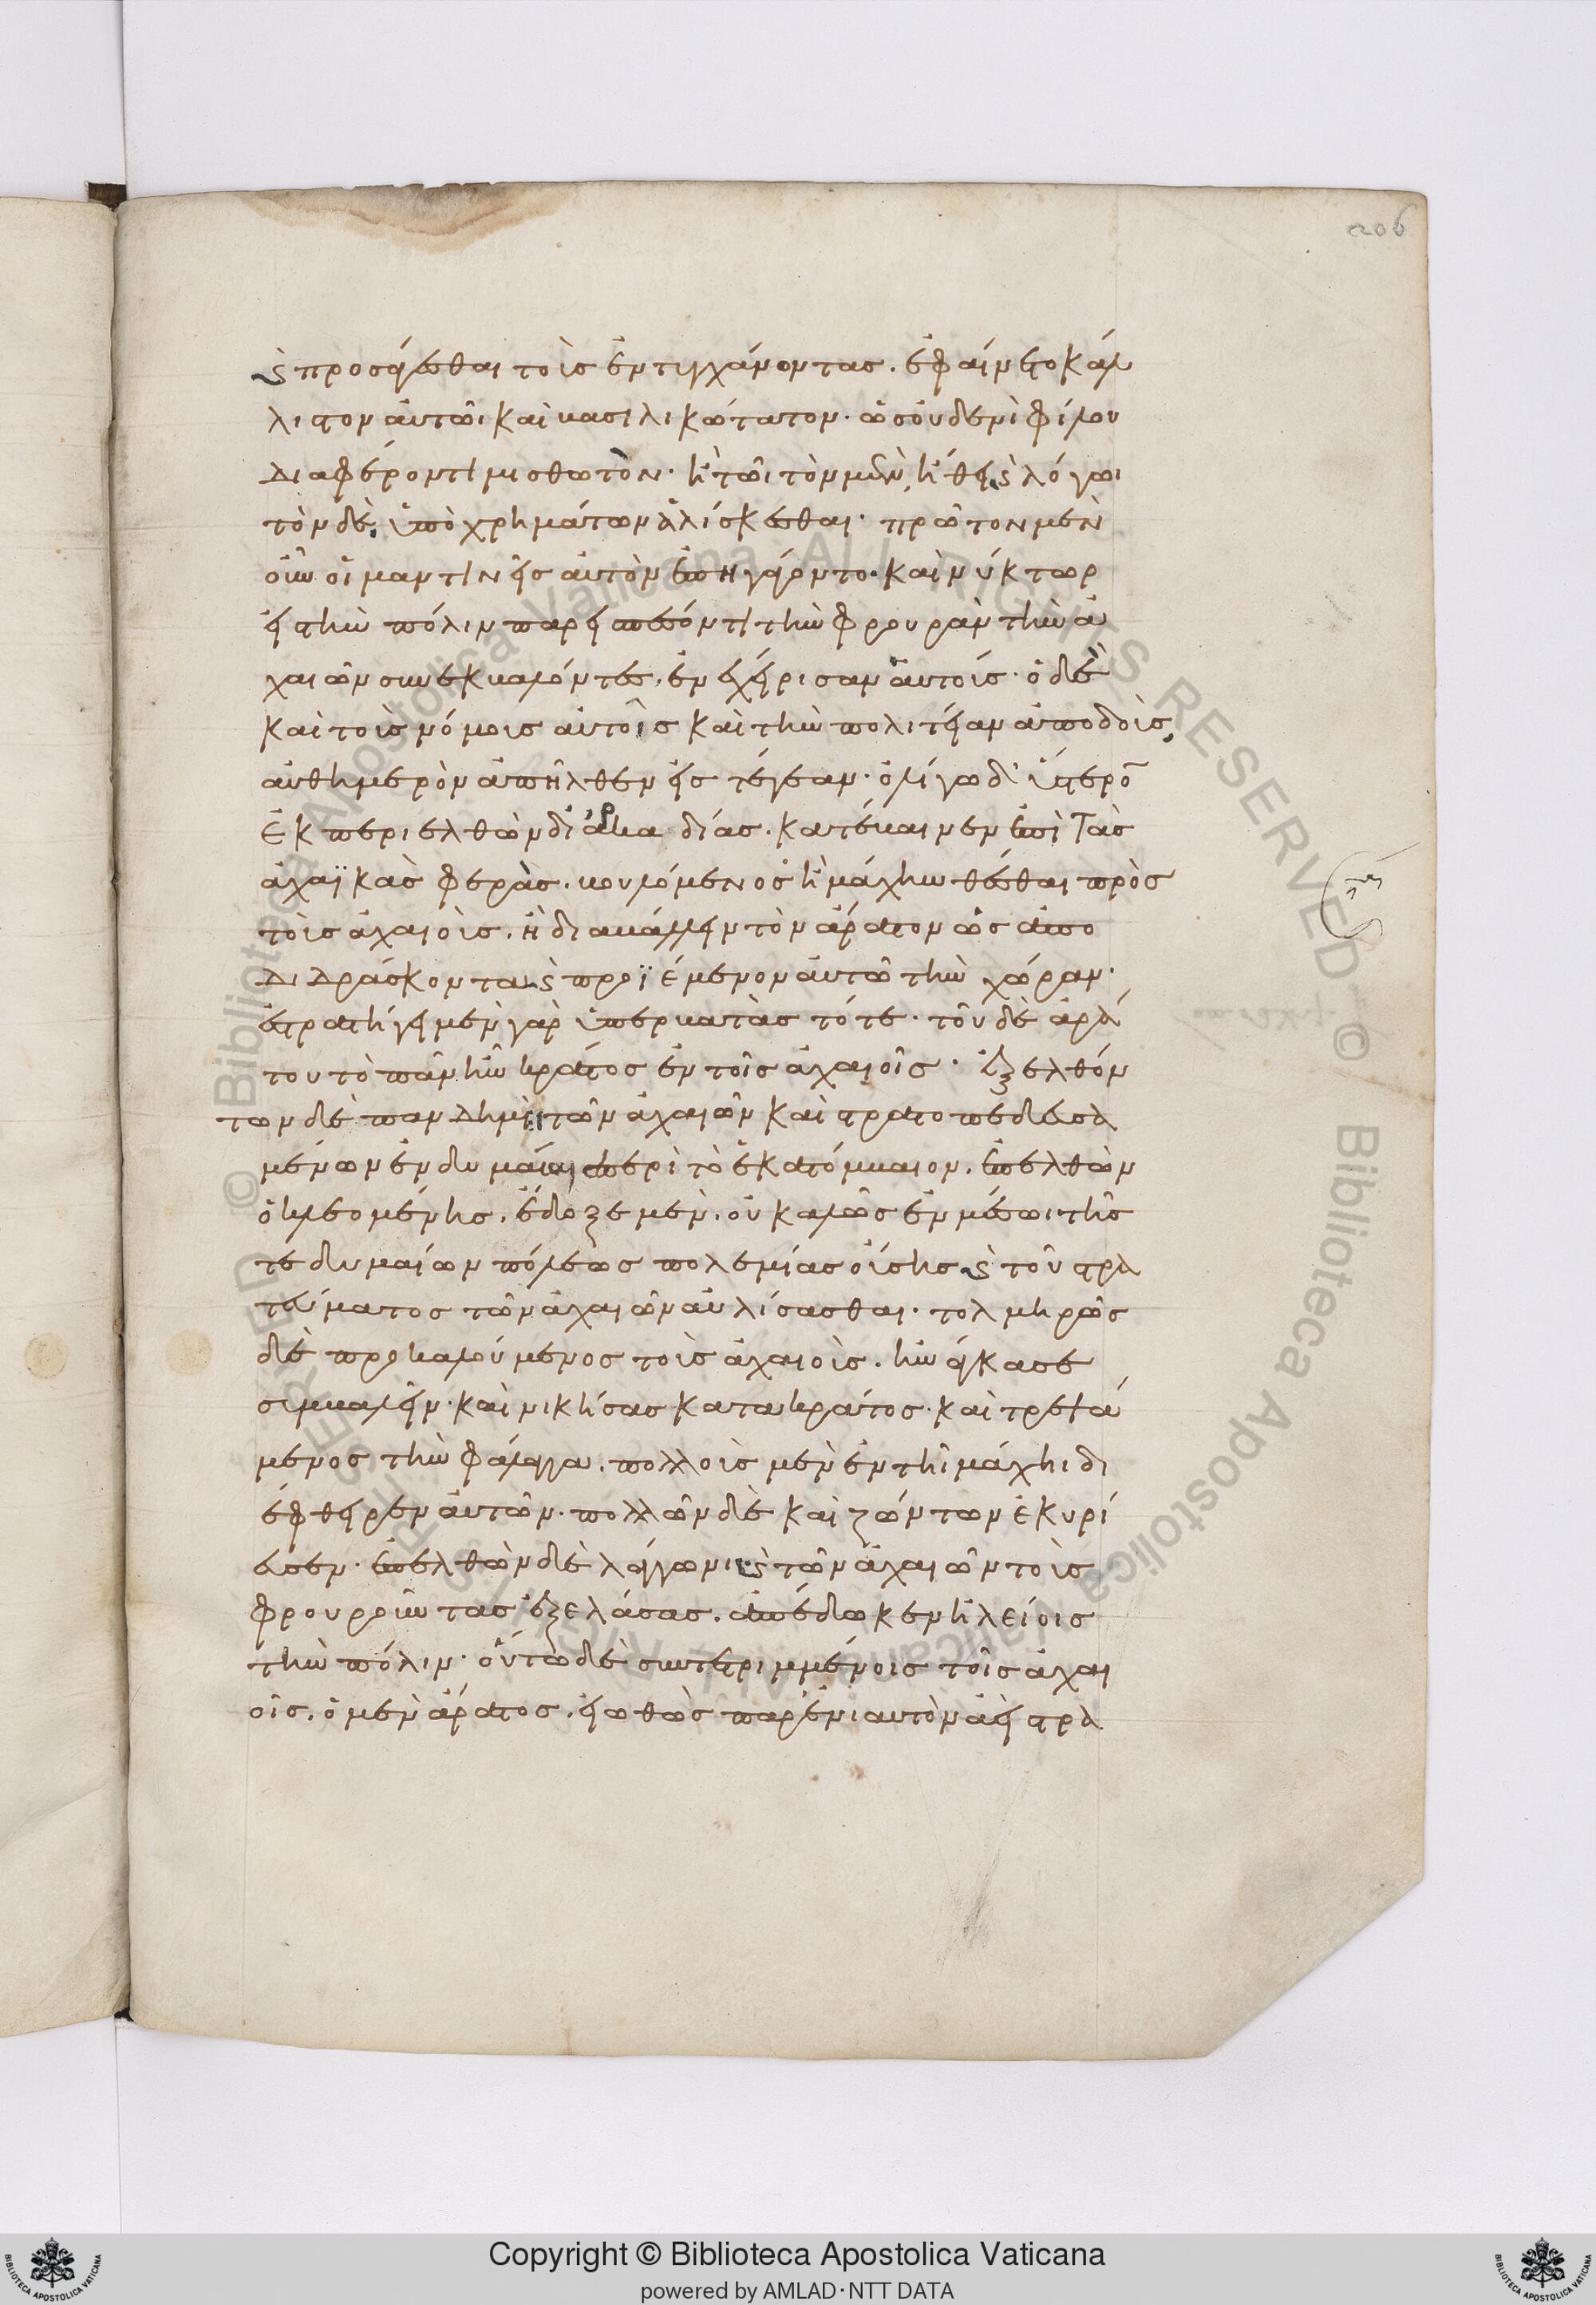 206
ϛ προσάγεσθαι τοὺς ἐντυγχάνοντας. ἐφαίνετο κάλ
λιστον αὐτῶι καὶ βασιλικώτατον. ὡς οὐδενὶ φίλου
διαφέροντι μισθωτὸν. ἢ τῶι τὸν μὲν, ἤθει ϛ λόγωι
τὸν δὲ, ὑπὸ χρημάτων ἁλίσκεσθαι. πρῶτον μὲν
οὖν οἱ μαντινεῖς αὐτὸν ἐπηγάγοντο. καὶ νύκτωρ
εἰς τὴν πόλιν παρεισπεσόντι τὴν φρουρὰν τὴν ἀ
χαιῶν συνεκβαλόντες, ἐνεχείρισαν αὑτούς. ὁ δὲ
καὶ τοὺς νόμους αὐτοῖς καὶ τὴν πολιτείαν ἀποδοὺς,
αὐθημερὸν ἀπῆλθεν εἰς τέγεαν. ὀλίγω δ' ὕστερο
ἐκπεριελθὼν δι' ἀρκαδίας. κατέβαινεν ἐπὶ τὰς
ἀχαϊκὰς φερὰς. βουλόμενος ἢ μάχην θέσθαι πρὸς
τοὺς ἀχαιοὺς. ἢ διαβάλλειν τὸν ἄρατον ὡς ἀπο
διδράσκοντα ϛ προϊέμενον αὐτῶ τὴν χώραν.
ἐστρατήγει μὲν γὰρ ὑπερβατὰς τότε. τοῦ δὲ ἀρά
του τὸ πᾶν ἦν κράτος ἐν τοῖς ἀχαιοῖς. ἐξελθόν
των δὲ πανδημεὶ τῶν ἀχαιῶν καὶ στρατοπεδευσα
μένων ἐν δυμαίαι περὶ τὸ ἑκατόμβαιον. ἐπελθὼν
ὁ κλεομένης. ἔδοξε μὲν. οὐ καλῶς ἐν μέσωι τῆς
τε δυμαίων πόλεως πολεμίας οὔσης ϛ τοῦ στρα
τεύματος τῶν ἀχαιῶν αὐλίσασθαι. τολμηρῶς
δὲ προκαλούμενος τοὺς ἀχαιοὺς. ἠνάγκασε
συμβαλεῖν. καὶ νικήσας κατακράτος. καὶ τρεψά
μενος τὴν φάλαγγα. πολλοὺς μὲν ἐν τῆι μάχηι δι
έφθειρεν αὐτῶν. πολλῶν δὲ καὶ ζώντων ἐκυρί
ευσεν. ἐπελθὼν δὲ λάγγωνι ϛ τῶν ἀχαιῶν τοὺς
φρουροῦντας ἐξελάσας. ἀπέδωκεν ἠλείοις
τὴν πόλιν. οὕτω δὲ συντετριμμένοις τοῖς ἀχαι
οῖς. ὁ μὲν ἄρατος. εἰωθὼς παρ' ἐνιαυτὸν ἀεὶ στρα
© Biblioteca Apostolica Vaticana ALL RIGHTS RESERVED
Copyright © Biblioteca Apostolica Vaticana
powered by AMLAD·NTT DATA